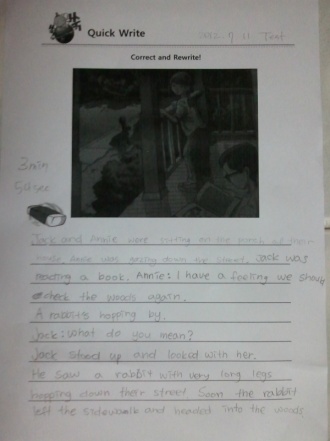 Quick Write
2012. 9 11 Test
Correct and Rewrite!
3min
59 sec
Jack and Annie were sitting on the porch of their
house. Annie was gazing down the street. Jack was
reading a book. Annie: I have a feeling we should
check the woods again.
A rabbit's hopping by.
Jack: What do you mean?
Jack stood up and looked with her.
He saw a rabbit with very long legs
hopping down their street Soon the rabbit
left the sidewalk and headed into the woods